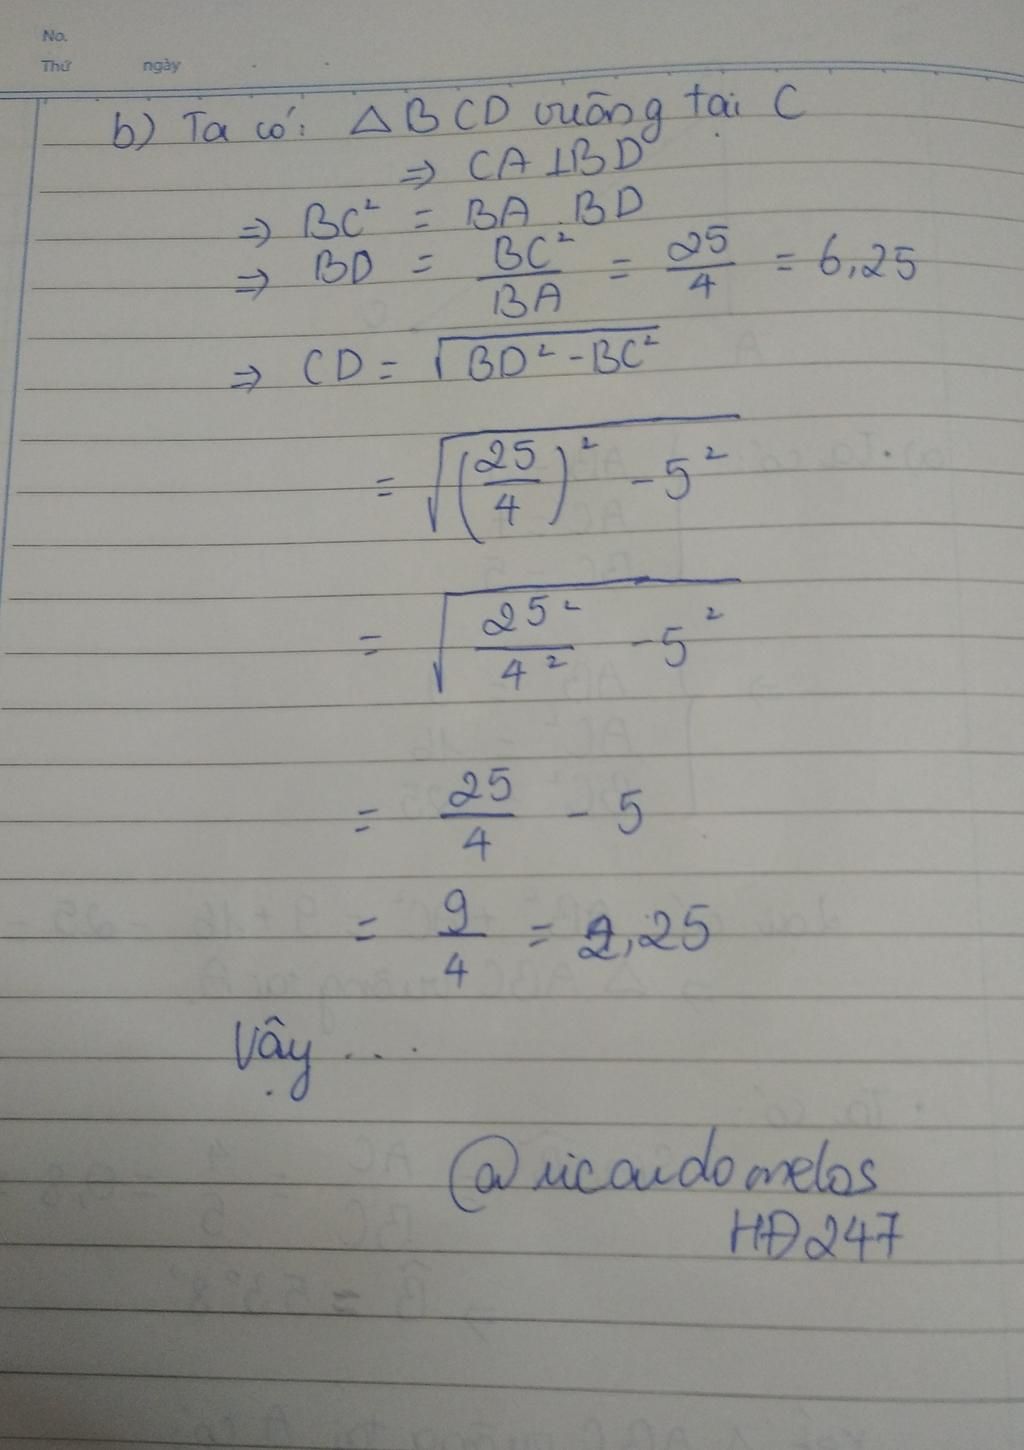 No.
Thứ ngày
b) Ta có: △BCD vuông tại C
⇒ CA ⊥ BD
⇒ BC² = BA . BD
⇒ BD = BC²/BA = 25/4 = 6,25
⇒ CD = √(BD² - BC²)
= √((25/4)² - 5²)
= √(25²/4² - 5²)
= 25/4 - 5
= 9/4 = 2,25
Vậy ...
@ricardomelos
HĐ247